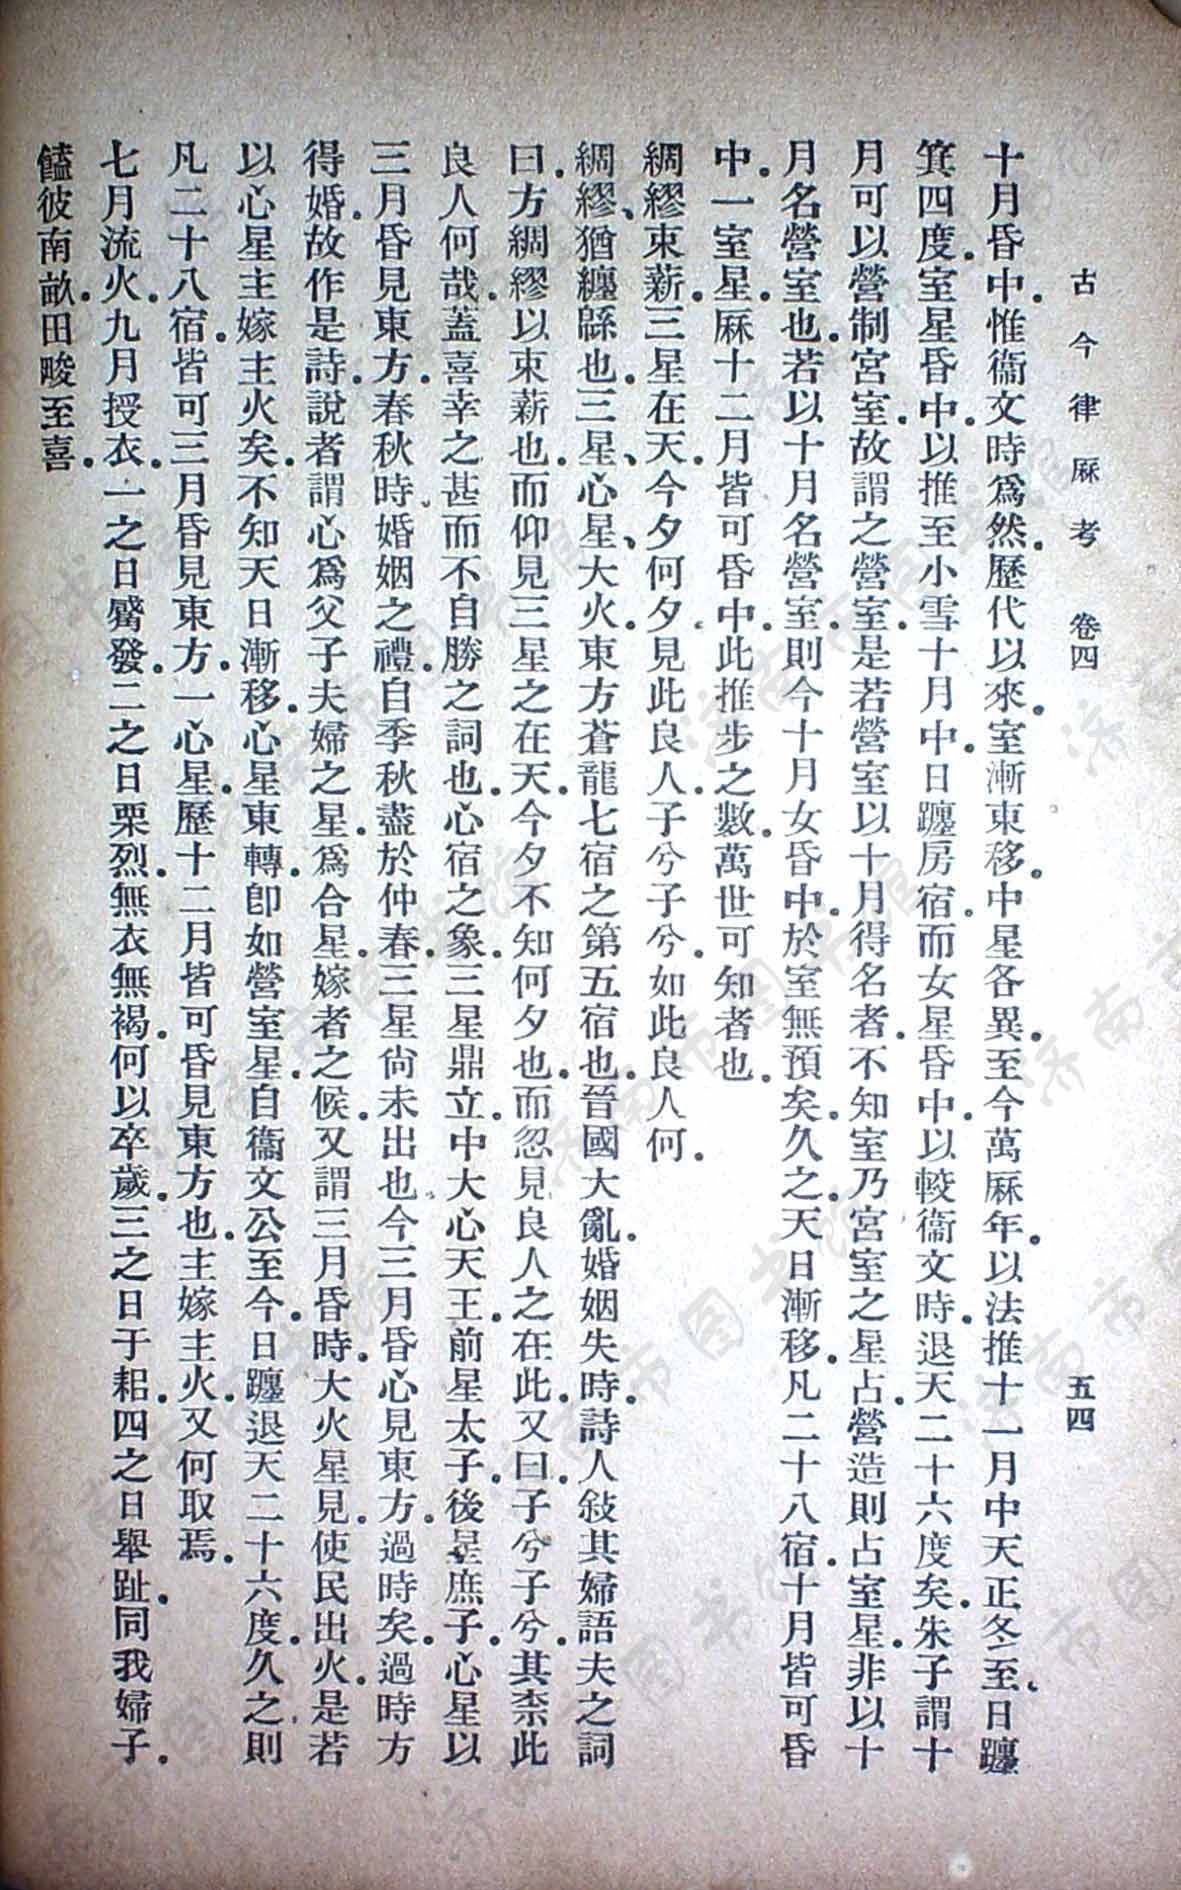 古今律厤考 卷四 五四
十月昏中。惟衞文時爲然。歷代以來。室漸東移。中星各異。至今萬厤年。以法推十一月中天正冬至。日躔
箕四度。室星昏中。以推至小雪十月中。日躔房宿。而女星昏中。以較衞文時。退天二十六度矣。朱子謂十
月可以營制宮室。故謂之營室。是若營室以十月得名者。不知室乃宮室之星。占營造則占室星。非以十
月名營室也。若以十月名營室。則今十月女昏中。於室無預矣。久之。天日漸移。凡二十八宿。十月皆可昏
中。一室星。厤十二月皆可昏中。此推步之數。萬世可知者也。
綢繆束薪。三星在天。今夕何夕。見此良人。子兮子兮。如此良人何。
綢繆、猶纏緜也。三星、心星、大火。東方蒼龍七宿之第五宿也。晉國大亂。婚姻失時。詩人敍其婦語夫之詞
曰。方綢繆以束薪也。而仰見三星之在天。今夕不知何夕也。而忽見良人之在此。又曰。子兮子兮。其柰此
良人何哉。蓋喜幸之甚而不自勝之詞也。心宿之象。三星鼎立。中大心天王。前星太子。後星庶子。心星以
三月昏見東方。春秋時婚姻之禮。自季秋盡於仲春。三星尙未出也。今三月昏心見東方。過時矣。過時方
得婚。故作是詩。說者謂心爲父子夫婦之星。爲合星。嫁者之候。又謂三月昏時。大火星見。使民出火。是若
以心星主嫁主火矣。不知天日漸移。心星東轉。卽如營室星。自衞文公至今。日躔退天二十六度。久之。則
凡二十八宿。皆可三月昏見東方。一心星。歷十二月皆可昏見東方也。主嫁主火。又何取焉。
七月流火。九月授衣。一之日觱發。二之日栗烈。無衣無褐。何以卒歲。三之日于耜。四之日舉趾。同我婦子。
饁彼南畝。田畯至喜。